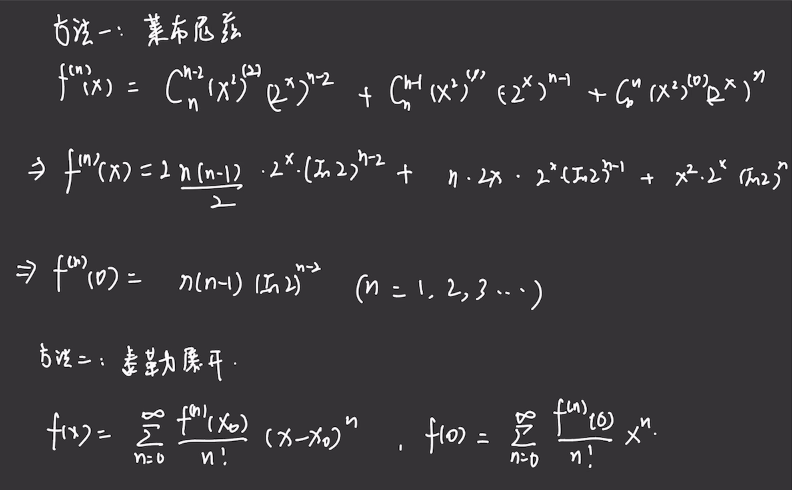 方法一：莱布尼兹
f⁽ⁿ⁾(x) = Cₙⁿ⁻²(x²)⁽²⁾(2ˣ)ⁿ⁻² + Cₙⁿ⁻¹(x²)⁽¹⁾(2ˣ)ⁿ⁻¹ + Cₙⁿ(x²)⁽⁰⁾(2ˣ)ⁿ
⇒ f⁽ⁿ⁾(x) = 2 n(n-1)/2 · 2ˣ · (ln2)ⁿ⁻² + n · 2x · 2ˣ(ln2)ⁿ⁻¹ + x² · 2ˣ (ln2)ⁿ
⇒ f⁽ⁿ⁾(0) = n(n-1)(ln2)ⁿ⁻² (n = 1, 2, 3 ···)
方法二：泰勒展开.
f(x) = ∑ₙ₌₀^∞ f⁽ⁿ⁾(x₀)/n! (x-x₀)ⁿ , f(0) = ∑ₙ₌₀^∞ f⁽ⁿ⁾(0)/n! xⁿ.